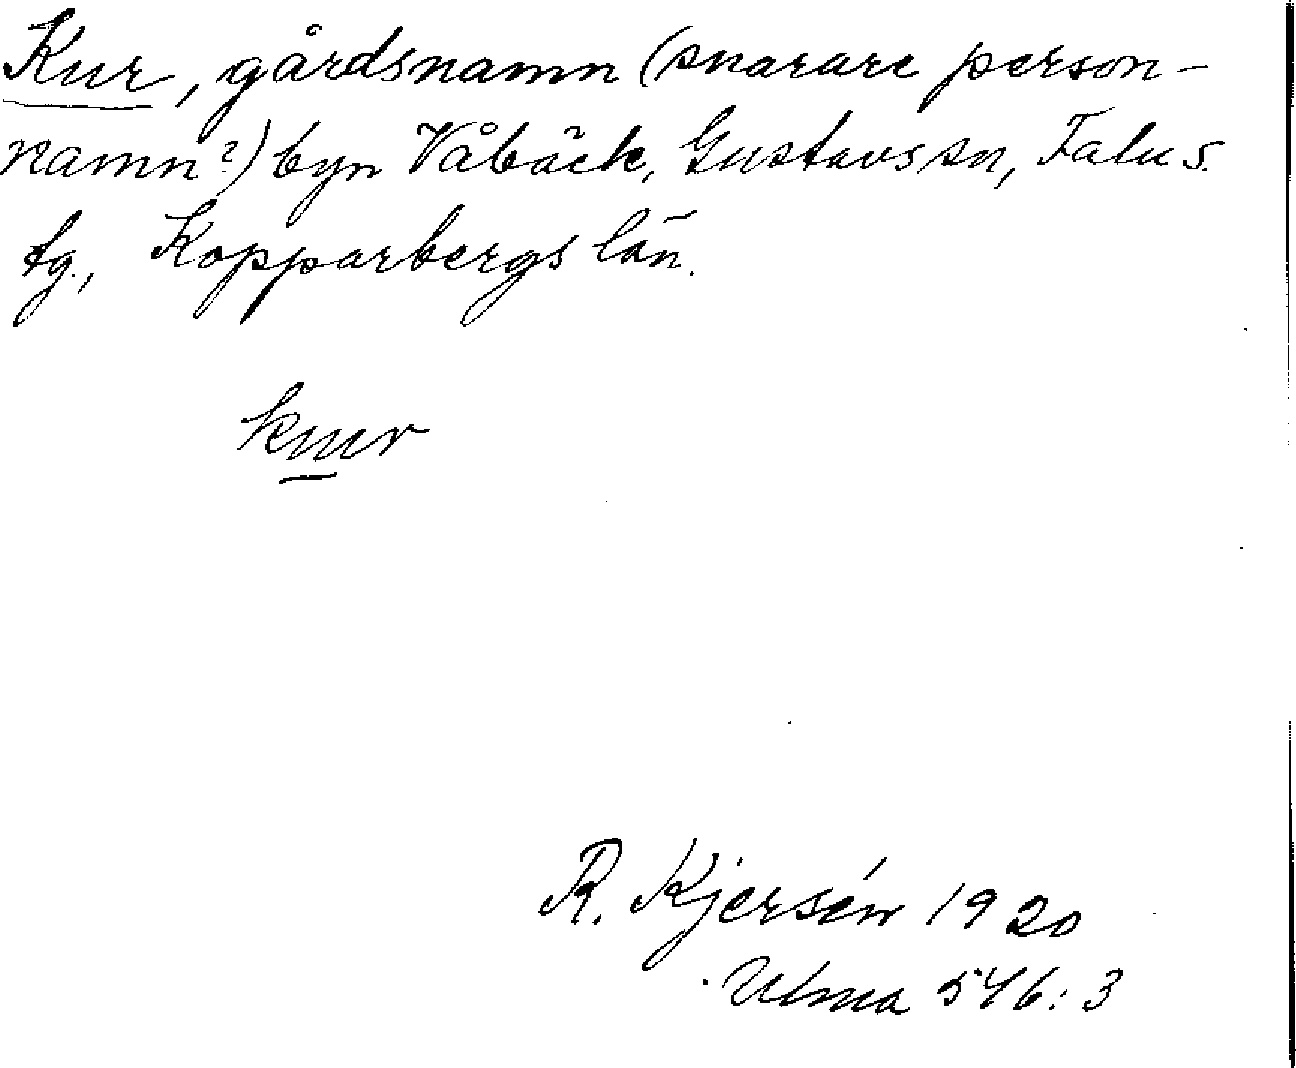 Kur, gårdsnamn (snarare person-
namn?) byn Våbäck, Gustavs sn, Falu s.
tg., Kopparbergs län.
kuur
R. Kjersén 1920
Ulma 546:3